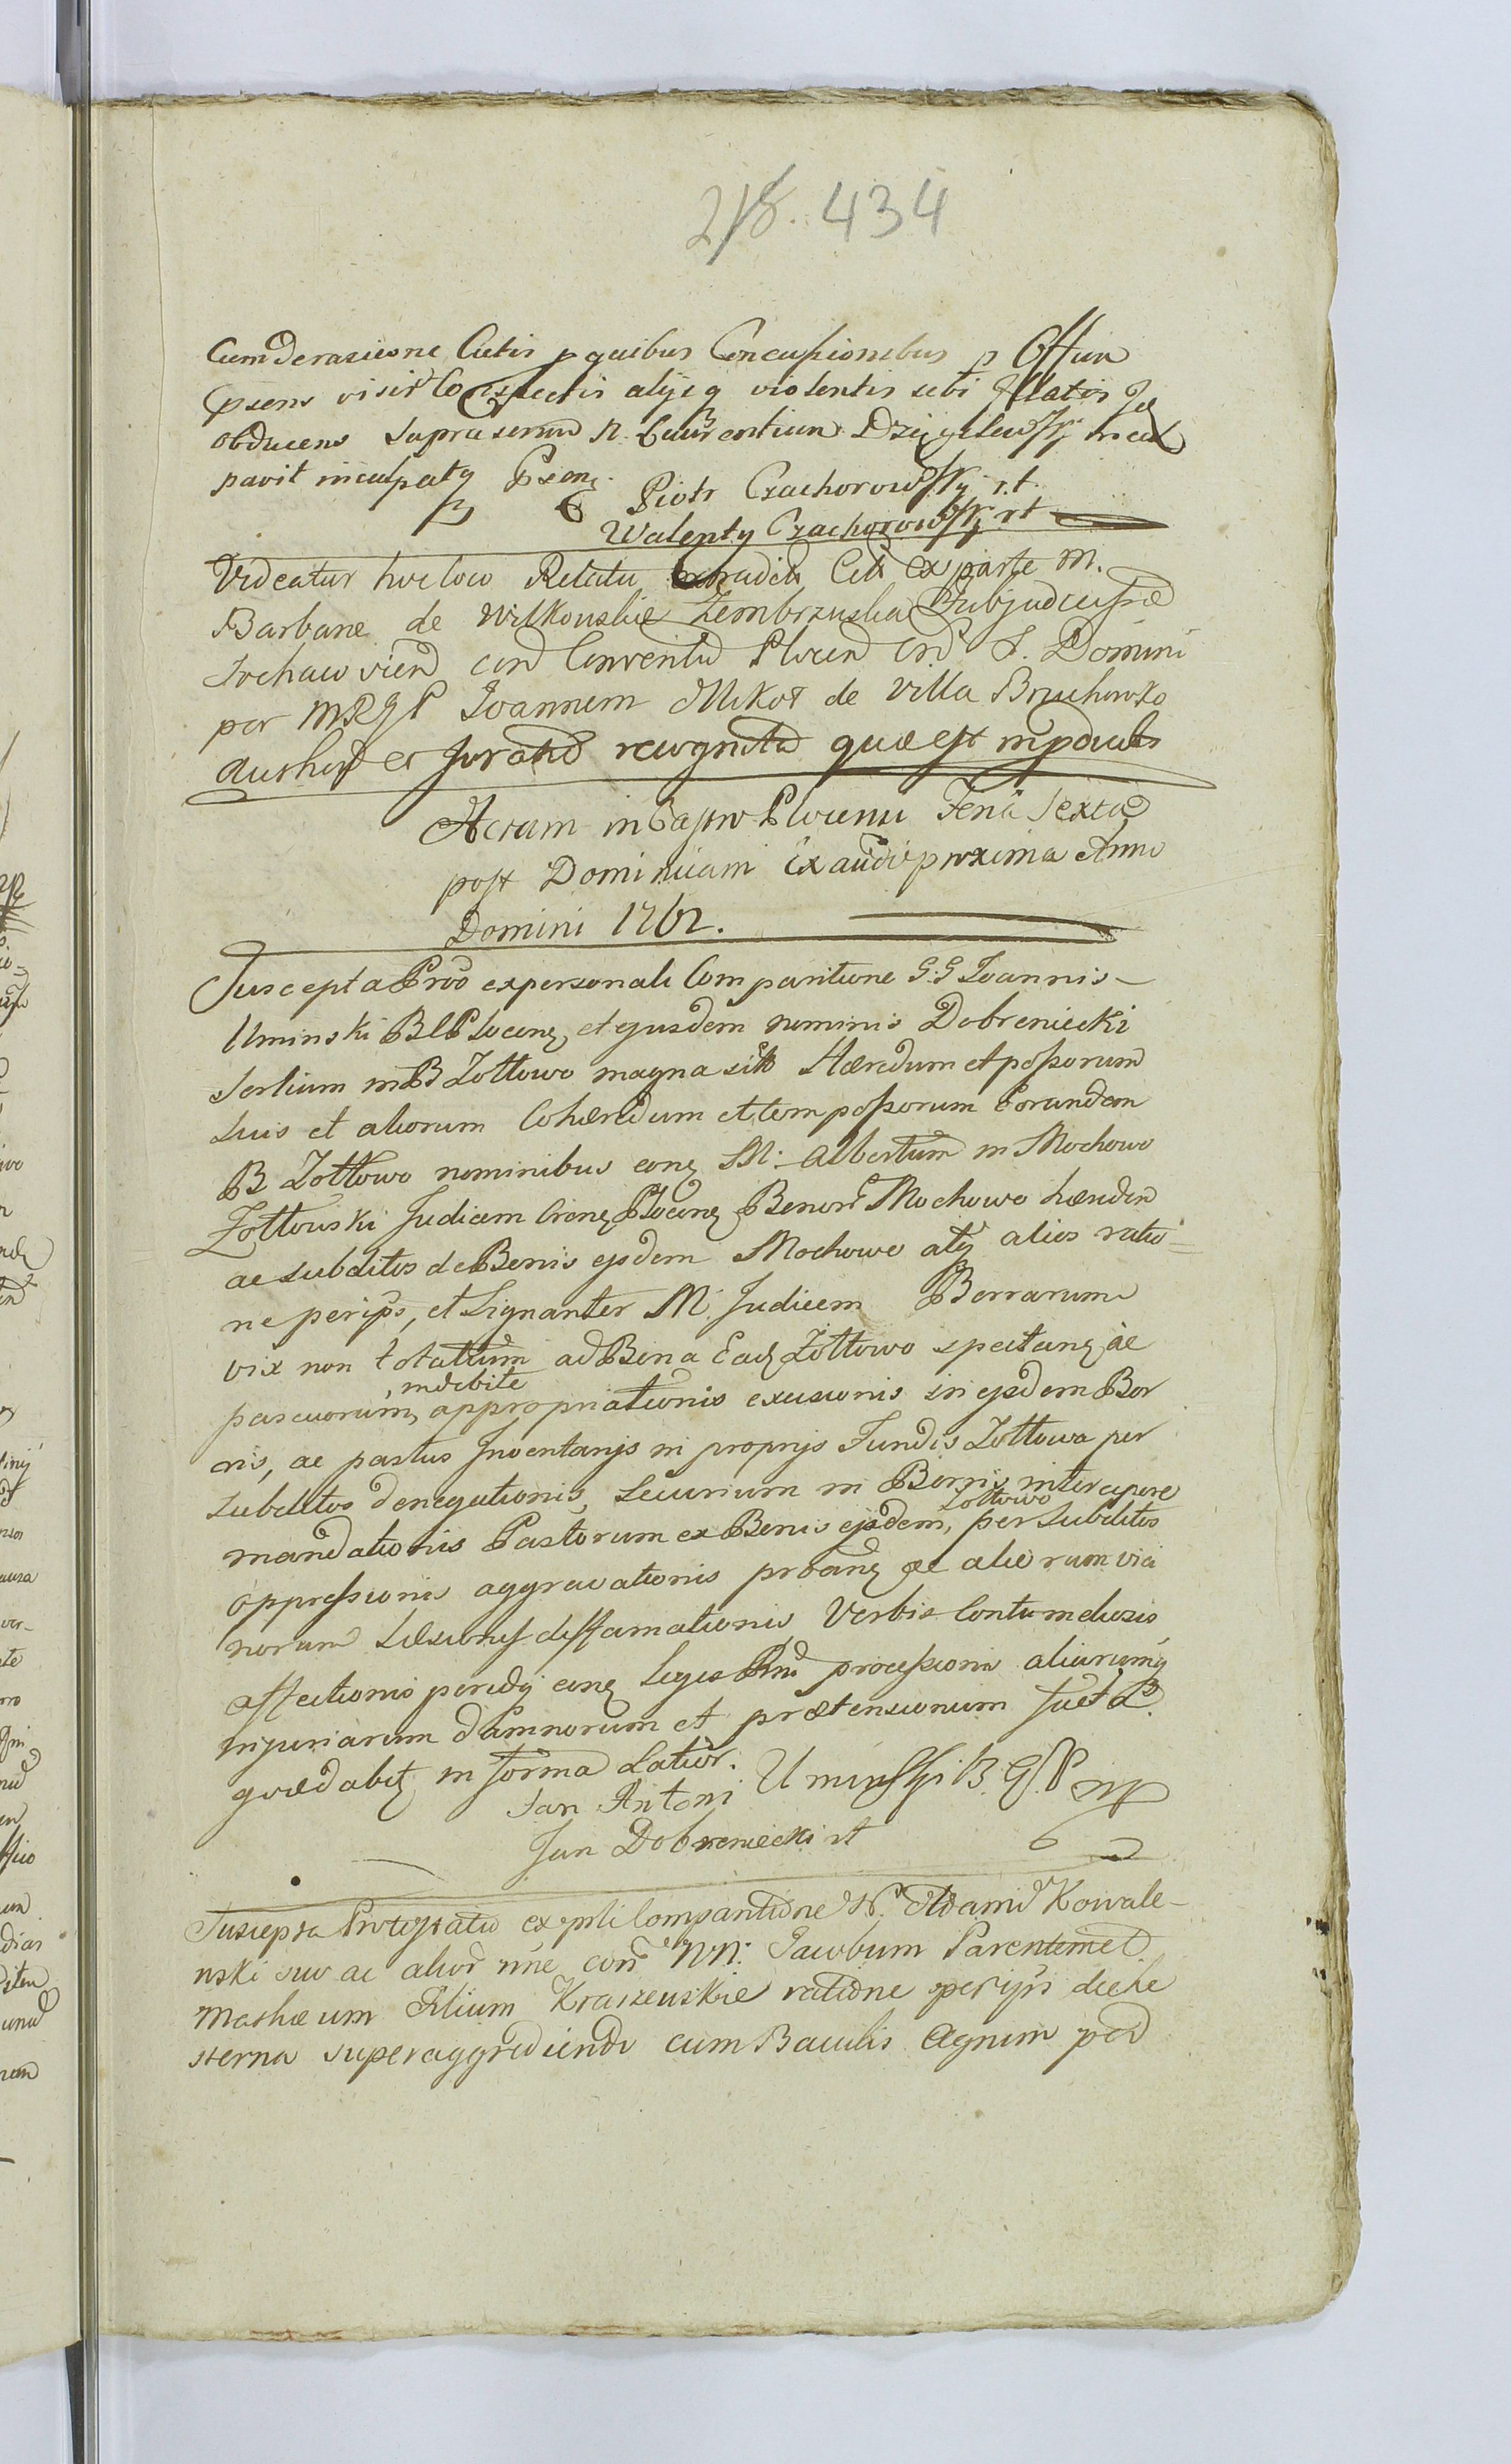 218. 434
Cum derasione Cutis p quibus Concussionibus p Offium
psens visis Conspectis alijsq violentis sibi Illatis Se
obducens supra eund N. Laurentium Dzięgelewski incul
pavit inculpatq Psenq.
Piotr Czachorowski r.t.
Walenty Czachorowski rt
Videatur hoc loco Relatio Cit ex parte M.
Barbare de Wilkouskie Zembrzuska Subjudicissæ
Sochaw sien con Conventu Plocen Ord S. Domini
per MRGP Joannem Mikot de Villa Bruchowko
authen et Jurato recognita quæ est inproductis
Actum in Castro Plocensi Feria Sexta
post Dominicam Exaudi proxima Anno
Domini 1762.
Suscepta Pros ex personali Comparitione G.G Joannis
Uminski BGPlocenq, et ejusdem nominis Dobreniecki
Sortium in B Zottowo magna sitt Hæredum et possorum
suis et aliorum Cohæredum et compossorum Eorundem
B Zottowo nominibus conq M. Albertum in Mochowo
Zottowski Judicem Crenq Plocenq Benorr Mochowo hæredem
ac subditos de Benis ejsdem Mochowo atq alios ratio=
ne perips, et Signanter M. Judicem Borrarum
vix non totatium ad Bona Eadq Zottowo spectanq ac
pascuorum, indebite appropriationis excisionis in ejsdem Bor
ris, ac pastus Inventarijs in proprijs Fundis Zottowo per
subditos denegationis, Securium in Borris intercipere
mandationis Pastorum ex Benis ejsdem, Zottowo per subditos
oppressionis aggravationis proanq et aliorum vici
norum Læsionis diffamationis Verbis Contumeliosis
affectionis peredq conq leges Rni processionis aliarumq
Injuriarum damnorum et prætensionum Juet L
grædabitq in forma Latior.
Jan Antoni Uminski B.G.P mp
Jan Dobreniecki rt
Suscepta Protestatio ex psli Comparitione N. Adami Kowale-
wski suo ac alior nne con NN. Jacobum Parentem et
Mathæum Filium Kraszeuskie ratione perips diehe
sterna superaggrediendo cum Baculis Agrum pod